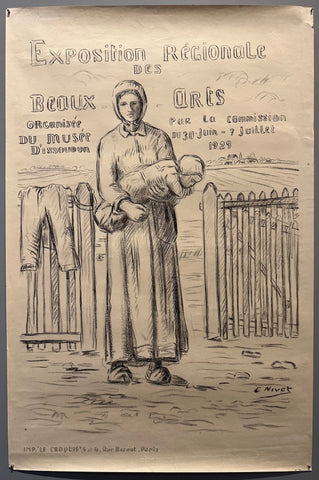 Exposition Régionale
DES
Beaux Arts
Organisée par la commission
du Musée du 30 Juin - 7 Juillet
D'Issoudun 1929
E Nivet
IMP. "LE CROQUIS" 4, Rue Paris